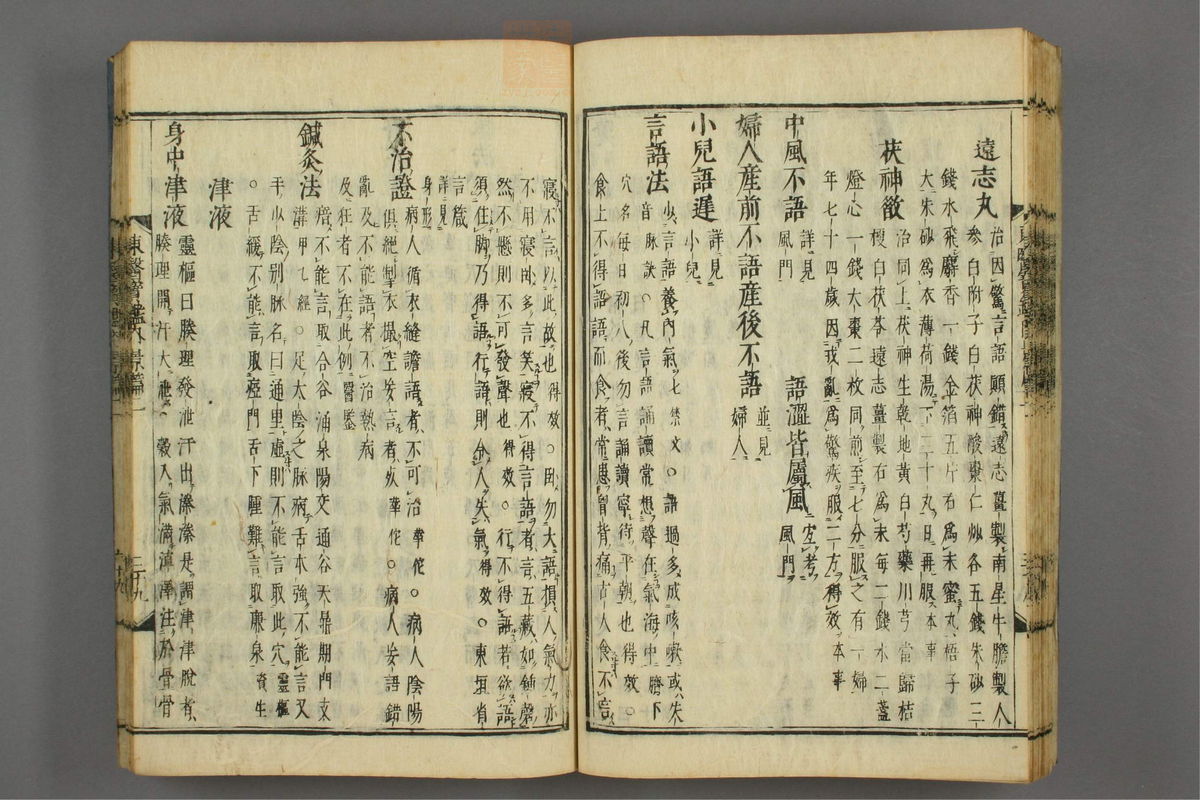 遠志丸 治因驚言語顛錯遠志薑製南星牛膽製人
參白附子白茯神酸棗仁炒各五錢朱砂三
錢水飛麝香一錢金箔五片右爲末蜜丸梧子
大朱砂爲衣薄荷湯下三十丸日再服本事
茯神散 治同上茯神生乾地黃白芍藥川芎當歸桔
梗白茯苓遠志薑製右爲末每二錢水二盞
燈心一錢大棗二枚同煎至七分服之有一婦
年七十四歲因我亂爲驚疾服二方得效本事
中風不語 詳見風門 語澁皆屬風 宜考風門
婦人產前不語產後不語 並見婦人
小兒語遲 詳見小兒
言語法 少言語養內氣七禁文○語過多成咳嗽或失
音脉訣○凡言語誦讀常想聲在氣海中臍下
穴名每日初入後勿言誦讀寧待平朝也得效○
食上不得語語而食者常患胷背痛古人食不言
寢不言以此故也得效○臥勿大語損人氣力亦
不用寢臥多言笑寢不得言語者言五藏如鍾磬
然不懸則不可發聲也得效○行不得語若欲語
須住脚乃得語行語則令人失氣得效○東垣省
言箴詳見身形
不治證 病人循衣縫譫語者不可治華佗○病人陰陽
俱絕掣衣撮空妄言者死華佗○病人妄語錯
亂及不能語者不治熱病
及狂者不在此例醫鑑
鍼灸法 瘖不能言取合谷涌泉陽交通谷天鼎期門支
溝甲乙經○足太陰之脉病舌本強不能言又
手少陰別脉名曰通里虛則不能言取此穴靈樞
○舌緩不能言取瘂門舌下腫難言取廉泉資生
津液
身中津液 靈樞曰腠理發泄汗出溱溱是謂津津脫者
腠理開汗大泄○穀入氣滿淖澤注於骨骨